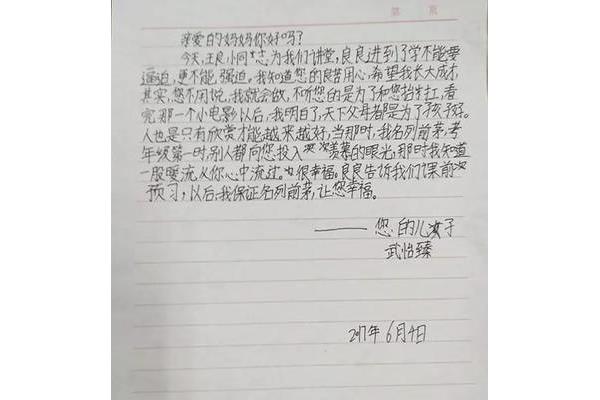 第 页
亲爱的妈妈你好吗？
今天，王良小同志为我们讲堂，良良进到了学不能要
逼迫，更不能强迫，我知道您的良苦用心，希望我长大成才，
其实，您不用说，我就会做，不听您的是为了和您抬扛，看
完那一个小电影以后，我明白了，天下父母者是为了孩子好。
人也是只有欣赏才能越来越好，当那时，我名列前茅，考
年级第一时，别人都向您投入羡慕的眼光，那时我知道
一股暖流从你心中流过。也很幸福。良良告诉我们课前
预习，以后，我保证名列前茅，让您幸福。
——您的儿子
武怡臻
2017年6月4日